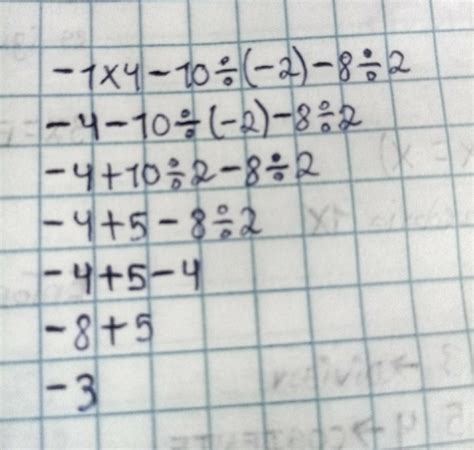 -1×4-10÷(-2)-8÷2
-4-10÷(-2)-8÷2
-4+10÷2-8÷2
-4+5-8÷2
-4+5-4
-8+5
-3